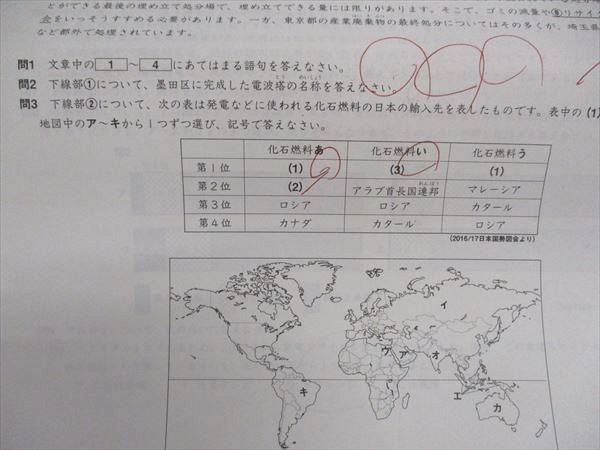 とができる最後の埋め立て処分場で、埋め立てできる量には限りがあります。そこで、ゴミの減量や⑧リサイ
金をいっそうすすめる必要があります。一方、東京都の産業廃棄物の最終処分についてはその多くが、埼玉県
など都外で処理されています。
問1 文章中の 1 ～ 4 にあてはまる語句を答えなさい。
問2 下線部①について、墨田区に完成した電波塔の名称を答えなさい。
問3 下線部②について、次の表は発電などに使われる化石燃料の日本の輸入先を表したものです。表中の (1)
地図中のア～キから1つずつ選び、記号で答えなさい。
化石燃料あ 化石燃料い 化石燃料う
第1位 (1) (3) (1)
第2位 (2) アラブ首長国連邦 マレーシア
第3位 ロシア ロシア カタール
第4位 カナダ カタール ロシア
(2016/17日本国勢図会より)
イ
ウ ア オ
エ
キ カ